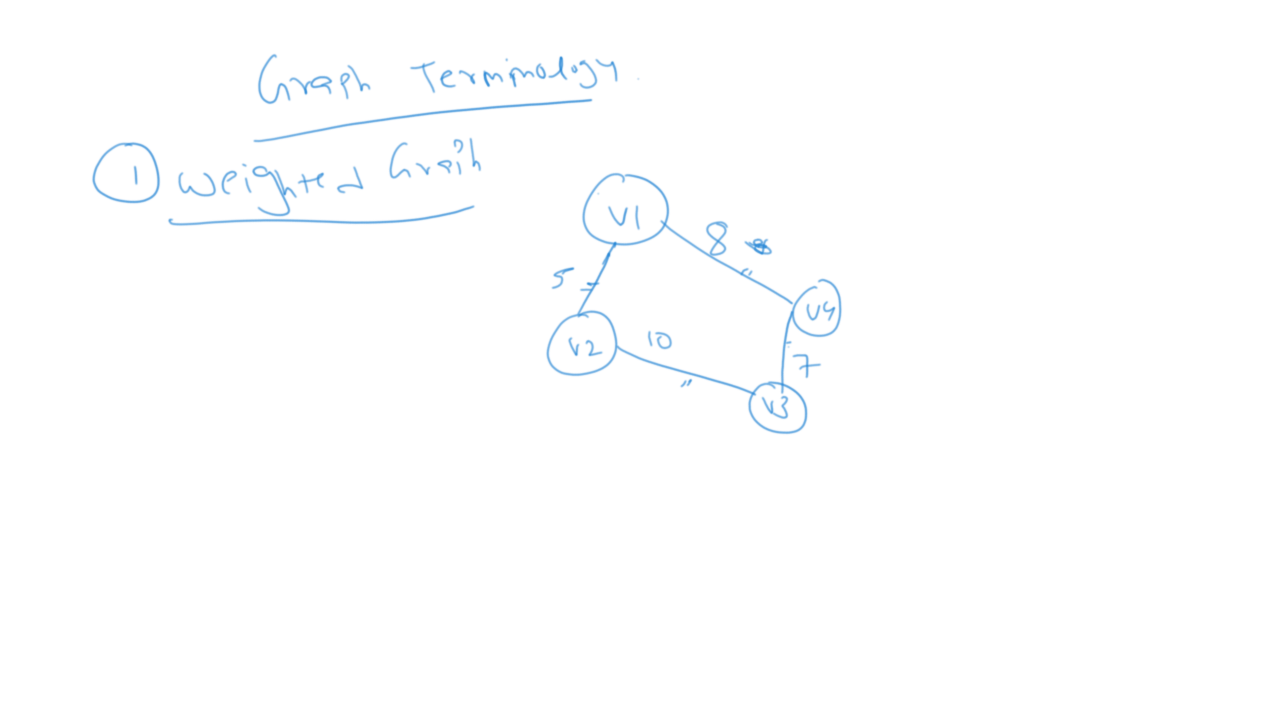 Graph Terminology
1 Weighted Graph
V1
8
5
V4
V2
10
7
V3